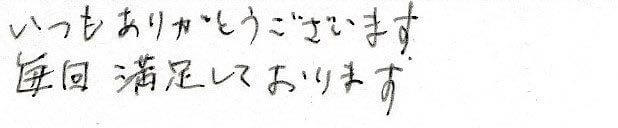 いつもありがとうございます
毎回 満足しております